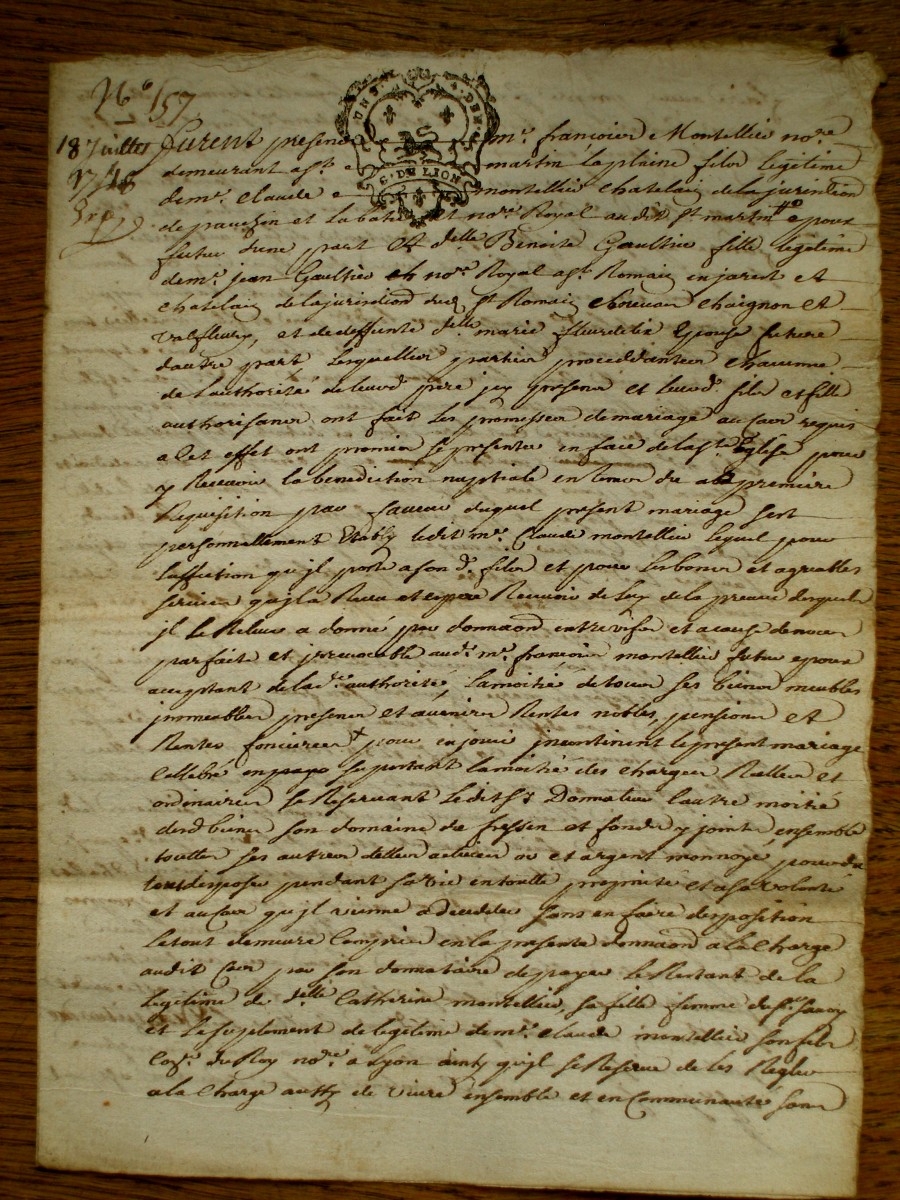 N.o 157
UN S. 4. DEN.
G. DE LION
18 Juillet
1748
furent presens mr. françois Montellier nore
demeurant a st. martin la plaine fils legitime
de mr. Claude montellier Chatelain de la jurisdion
de et nore. Royal audit st. martin epoux
futur dune part Et delle Benoite Gaultier fille legitime
de mr. jean Gaultier nore Royal a st. Romain en jarest et
chatelain de la jurisdiond dud. st. Romain Chaignon et
valfleury, et de deffunte delle marie fleurdelix Epouse future
dautre part, lesquelles parties proceddantes chacunne
de lauthorité de leurd. pere jcy presens et leurd. fils et fille
authorisans ont fait les promesses de mariage au cas requis
a cet effet ont promis se presenter en face de la ste. Eglise pour
y Recevoir la benediction nuptiale en lun deux a la premiere
Requisition par faveur duquel present mariage sest
personnellement Etably ledit mr. Claude montellier lequel pour
laffection qu'jl porte a son d. fils et pour les bons et agreables
services qu'jl a Receu et espere Recevoir de luy de la preuve desquels
jl le Releve a donné par donnaond entre vifs et a cause de noces
parfaite et jrrevocable aud. mr. françois montellier futur epoux
acceptant de lade. authorité, la moitié de tous ses biens meubles
jmmeubles presens et avenirs Rentes nobles, pensions et
Rentes foncieres + pour en jouir jncontinent le present mariage
Cellebré en supportant la moitié des charges Relles et
ordinaires se Reservant ledit sr Donnateur lautre moitié
desd biens son domaine de fressen et fonds y joints, ensemble
touttes ses autres dettes actives or et argent monnoyé, pour du
tout disposer pendant sa vie en toutte proprieté et a sa volonté
et au cas qu'jl vienne a deceder sans en faire disposition
le tout demeure Compris en la presente donnaond a la Charge
audit Cas par son donnataire de payer le Restant de la
legitime de delle Catherine montellier, sa fille femme de sr.
et le suplement de legitime de mr. Claude montellier son fils
Coner. du Roy nore. a Lyon ainsy qu'jl se Reserve de les Regler
a la Charge aussy de vivre ensemble et en Communauté sans